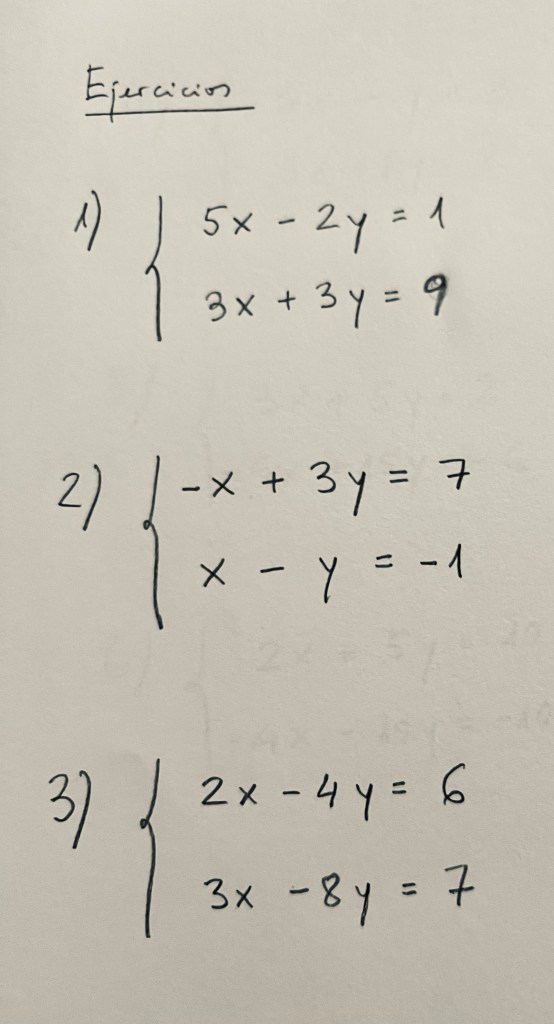 Ejercicios
1) { 5x - 2y = 1
3x + 3y = 9
2) { -x + 3y = 7
x - y = -1
3) { 2x - 4y = 6
3x - 8y = 7